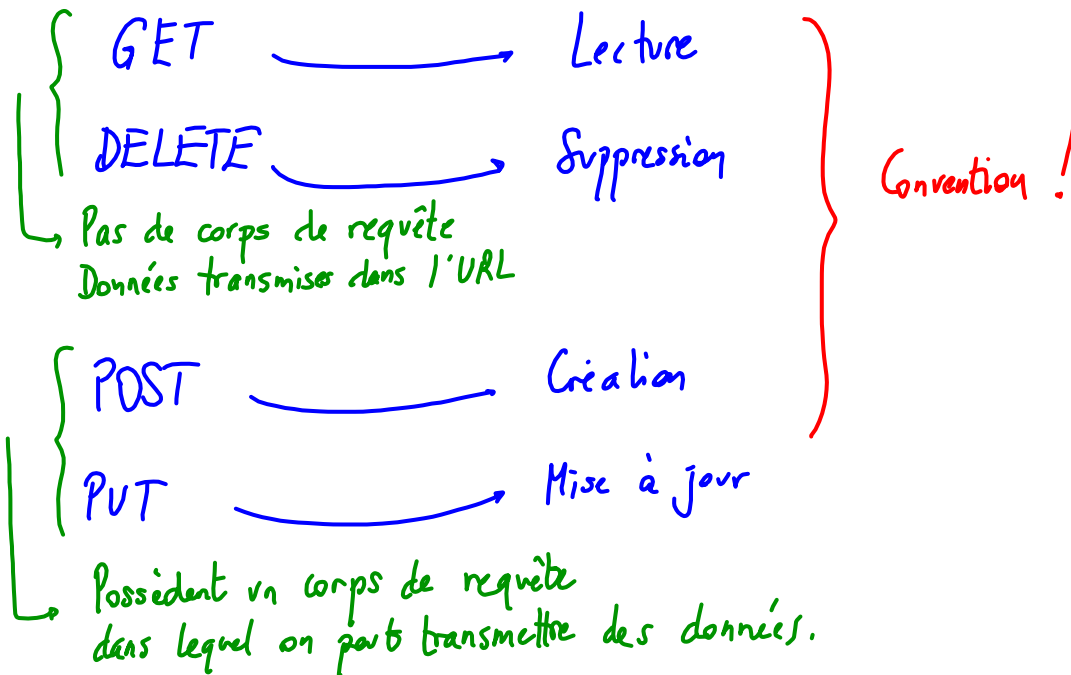 GET Lecture
DELETE Suppression
Convention !
Pas de corps de requête
Données transmises dans l'URL
POST Création
PUT Mise à jour
Possèdent un corps de requête
dans lequel on peut transmettre des données.